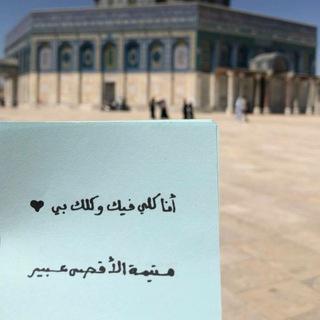 أنا كلي فيك وكلك بي ♥
متيمة الأقصى عبير